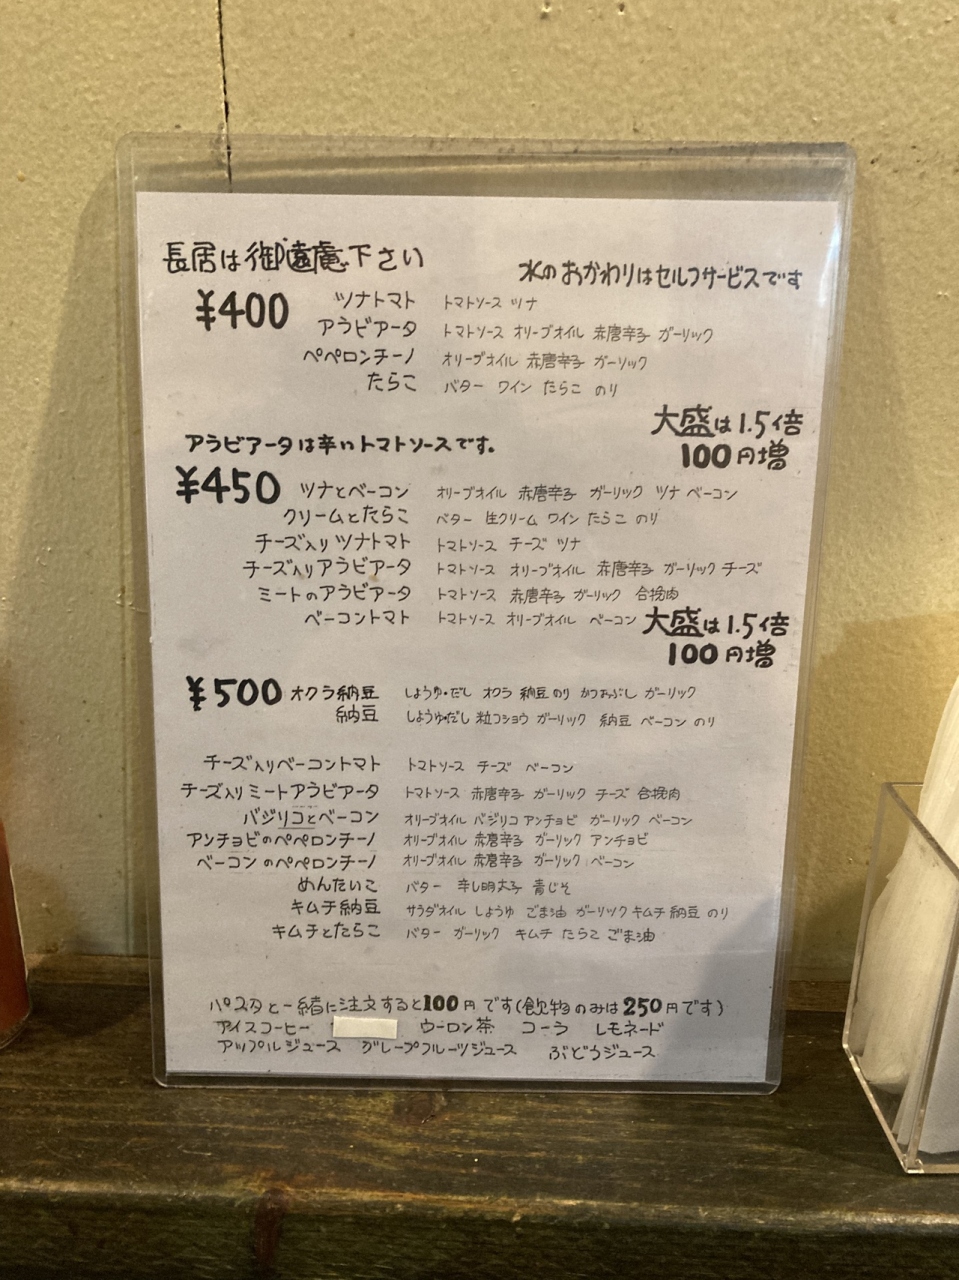 長居は御遠慮下さい
水のおかわりはセルフサービスです
¥400 ツナトマト トマトソース ツナ
アラビアータ トマトソース オリーブオイル 赤唐辛子 ガーリック
ペペロンチーノ オリーブオイル 赤唐辛子 ガーリック
たらこ バター ワイン たらこ のり
大盛は1.5倍
100円増
アラビアータは辛いトマトソースです。
¥450 ツナとベーコン オリーブオイル 赤唐辛子 ガーリック ツナ ベーコン
クリームとたらこ バター 生クリーム ワイン たらこ のり
チーズ入りツナトマト トマトソース チーズ ツナ
チーズ入りアラビアータ トマトソース オリーブオイル 赤唐辛子 ガーリック チーズ
ミートのアラビアータ トマトソース 赤唐辛子 ガーリック 合挽肉
ベーコントマト トマトソース オリーブオイル ベーコン
大盛は1.5倍
100円増
¥500 オクラ納豆 しょうゆ・だし オクラ 納豆 のり かつおぶし ガーリック
納豆 しょうゆ・だし 粒コショウ ガーリック 納豆 ベーコン のり
チーズ入りベーコントマト トマトソース チーズ ベーコン
チーズ入りミートアラビアータ トマトソース 赤唐辛子 ガーリック チーズ 合挽肉
バジリコとベーコン オリーブオイル バジリコ アンチョビ ガーリック ベーコン
アンチョビのペペロンチーノ オリーブオイル 赤唐辛子 ガーリック アンチョビ
ベーコンのペペロンチーノ オリーブオイル 赤唐辛子 ガーリック ベーコン
めんたいこ バター 辛し明太子 青じそ
キムチ納豆 サラダオイル しょうゆ ごま油 ガーリック キムチ 納豆 のり
キムチとたらこ バター ガーリック キムチ たらこ ごま油
パスタと一緒に注文すると100円です(飲物のみは250円です)
アイスコーヒー ウーロン茶 コーラ レモネード
アップルジュース グレープフルーツジュース ぶどうジュース